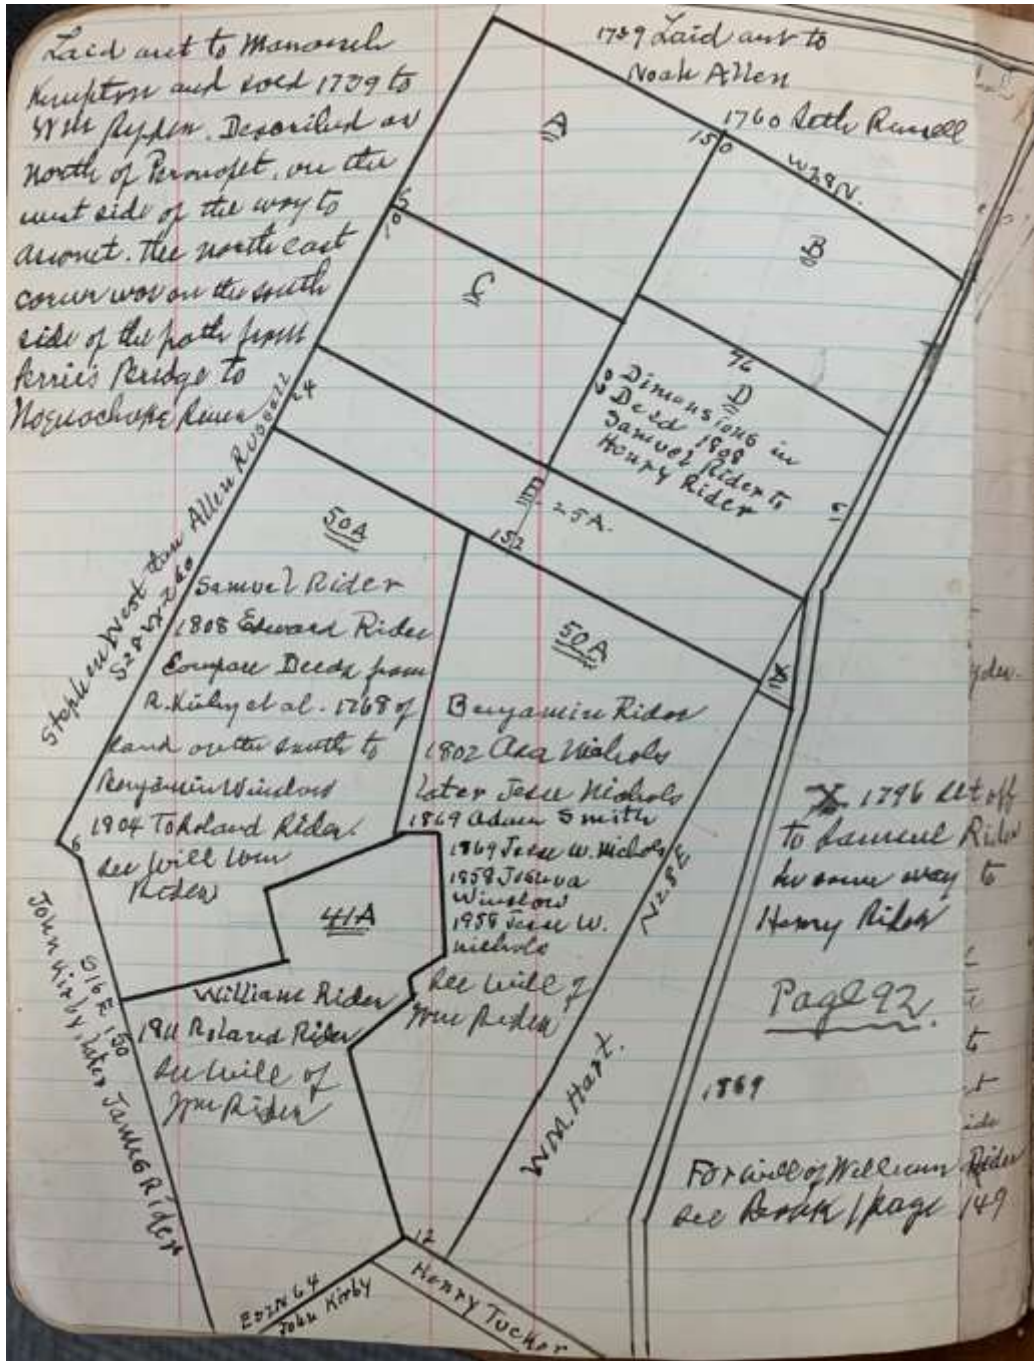 Laid out to Manasseh
Kempton and sold 1739 to
Wm Ryder. Described as
north of Ponsopet, on the
west side of the way to
Asonet. The north east
corner was on the south
side of the path from
Perrie's Bridge to
River
1739 Laid out to
Noah Allen
1760 Seth Russell
A
150
W28N.
B
5
10
C
76
D
Dimensions in
Deed 1808
Samuel Rider to
Henry Rider
24
25A.
152
Stephen West then Allen Russell
50A
Samuel Rider
1808 Edward Rider
Compare Deeds from
R. Kirby et al. 1768 of
land on the south to
Benjamin Winslow
1804 To Roland Rider
see Will Wm
Rider
50A
Benjamin Rider
1802 Asa Nichols
later Jesse Nichols
1869 Adam Smith
1869 Jesse W. Nichols
1858 Joshua
Winslow
1958 Jesse W.
nichols
see will of
Wm Rider
N28E
6
41A
William Rider
1811 Roland Rider
see will of
Wm Rider
S16E 150
John Kirby, later James Rider
WM. Hart.
1796 set off
to Samuel Rider
to
Henry Rider
Page 92.
1869
For will of William Rider
see Book 1 page 149
12
John Kirby
Henry Tucker